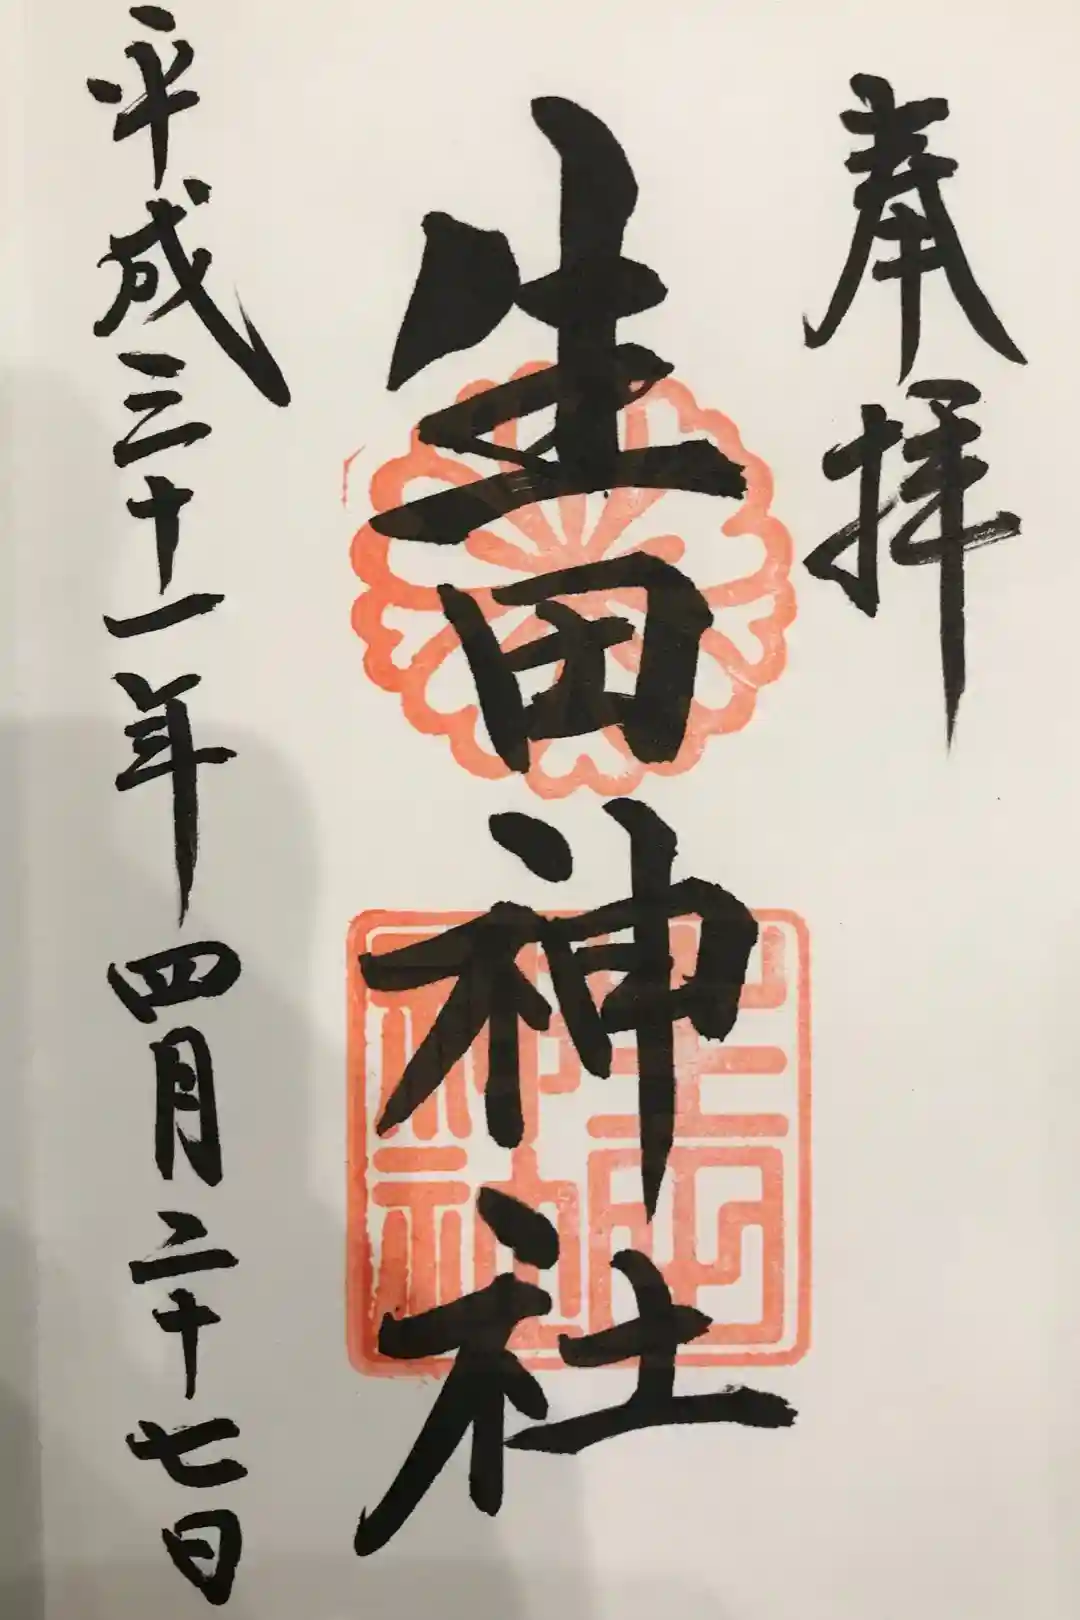 奉拝
生田神社
平成三十一年四月二十七日
生田神社